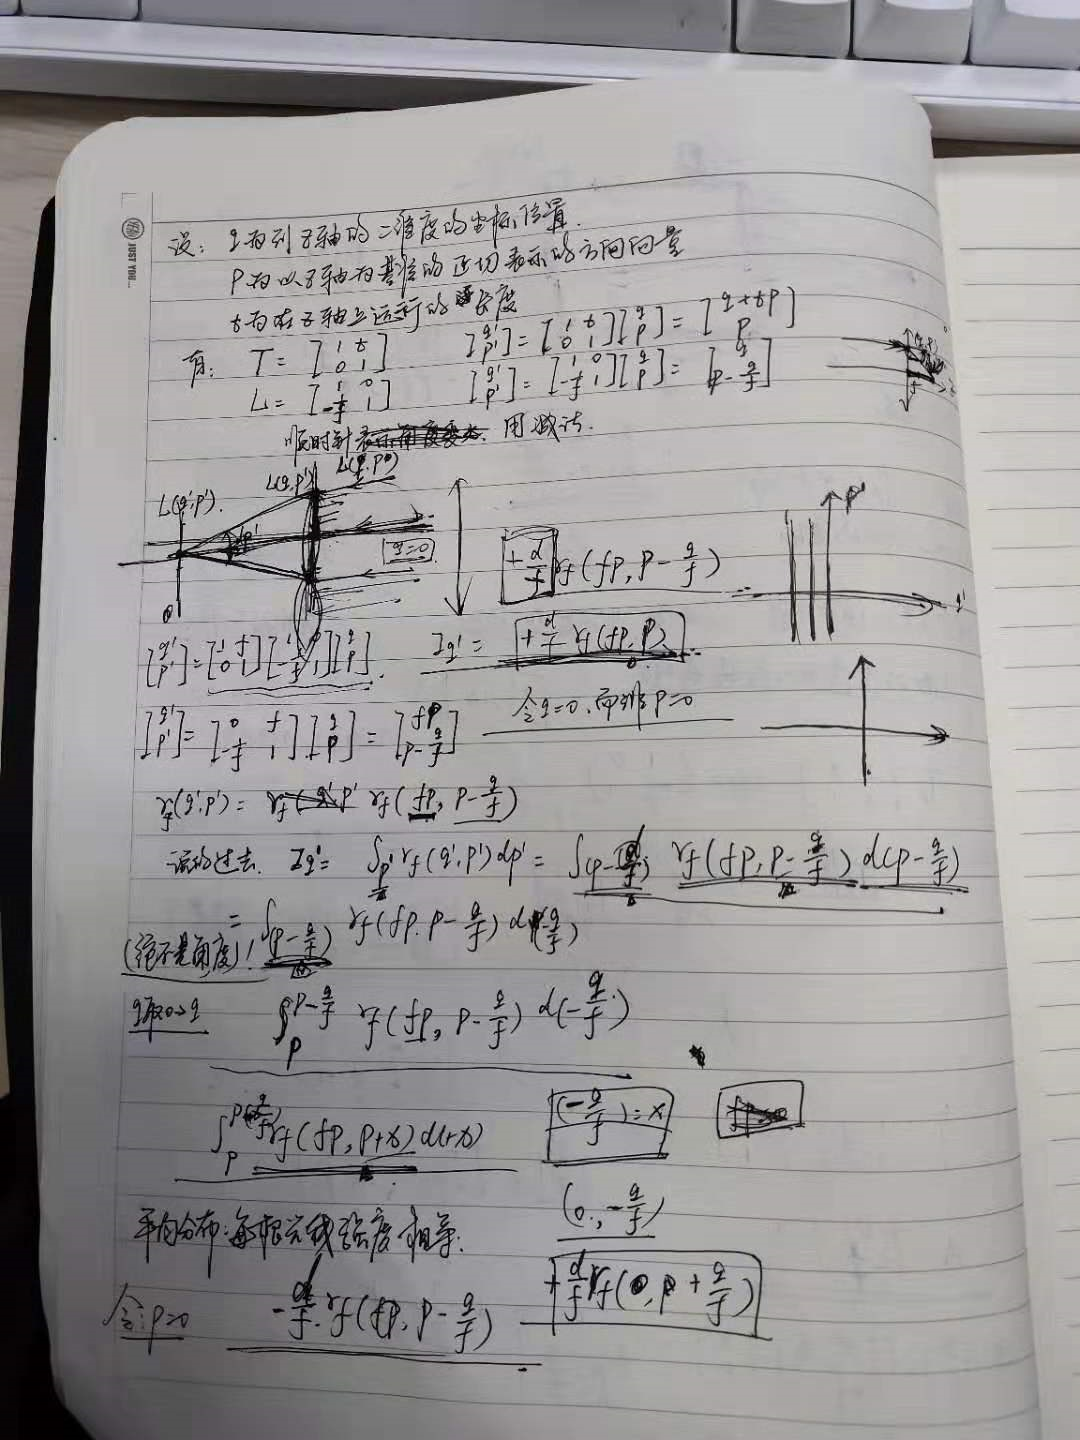 JUST YOU...
设: q为到z轴的二维度的坐标位置.
p为以z轴为基准的正切表示的方向向量
t为在z轴上运行的长度
有: T = [1 t; 0 1] [q'; p'] = [1 t; 0 1][q; p] = [q+tp; p]
L = [1 0; -1/f 1] [q'; p'] = [1 0; -1/f 1][q; p] = [q; p - q/f]
顺时针 用减法.
L(q',p'). L(q,p') L(q,p)
q=0
+ d/f rf(fp, p - q/f)
p'
q'
[q'; p'] = [1 f; 0 1][1 0; -1/f 1][q; p]. Iq' = + d/f rf(fp, p)
[q'; p'] = [0 f; -1/f 1][q; p] = [fp; p - q/f] 令q=0, p=0
rf(q',p') = rf(fp, p - q/f)
过去. Iq' = ∫p' rf(q',p')dp' = ∫(p - q/f) rf(fp, p - q/f) d(p - q/f)
= ∫(p - q/f) rf(fp, p - q/f) d(-q/f)
(绝不是角度)!
q取0→q ∫p^(p - q/f) rf(fp, p - q/f) d(-q/f)
∫p rf(fp, p+x) d(+x) (-q/f) = x
平均分布: 每根光线强度相等. (0, -q/f)
令: p=0 - d/f · rf(fp, p - q/f) + d/f rf(0, p + q/f)